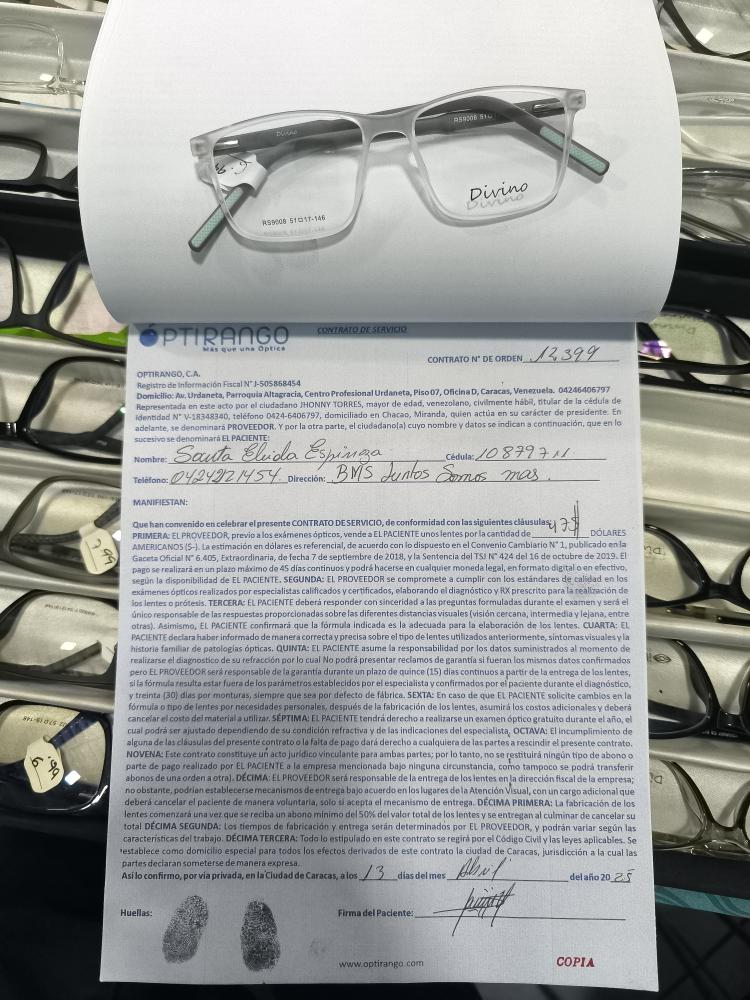 Divino
RS9008 51
Divino
RS9008 51□17-146
OPTIRANGO
Más que una Óptica
CONTRATO DE SERVICIO
CONTRATO N° DE ORDEN 12,399
OPTIRANGO, C.A.
Registro de Información Fiscal N° J-505868454
Domicilio: Av. Urdaneta, Parroquia Altagracia, Centro Profesional Urdaneta, Piso 07, Oficina D, Caracas, Venezuela. 04246406797
Representada en este acto por el ciudadano JHONNY TORRES, mayor de edad, venezolano, civilmente hábil, titular de la cédula de
identidad N° V-18348340, teléfono 0424-6406797, domiciliado en Chacao, Miranda, quien actúa en su carácter de presidente. En
adelante, se denominará PROVEEDOR. Y por la otra parte, el ciudadano(a) cuyo nombre y datos se indican a continuación, que en lo
sucesivo se denominará EL PACIENTE:
Nombre: Santa Elvida Espinoza Cédula: 10879711
Teléfono: 04242221454 Dirección: BMS Juntos Somos mas.
MANIFIESTAN:
Que han convenido en celebrar el presente CONTRATO DE SERVICIO, de conformidad con las siguientes cláusulas:
PRIMERA: EL PROVEEDOR, previo a los exámenes ópticos, vende a EL PACIENTE unos lentes por la cantidad de 47$ DÓLARES
AMERICANOS ($-). La estimación en dólares es referencial, de acuerdo con lo dispuesto en el Convenio Cambiario N° 1, publicado en la
Gaceta Oficial N° 6.405, Extraordinaria, de fecha 7 de septiembre de 2018, y la Sentencia del TSJ N° 424 del 16 de octubre de 2019. El
pago se realizará en un plazo máximo de 45 días continuos y podrá hacerse en cualquier moneda legal, en formato digital o en efectivo,
según la disponibilidad de EL PACIENTE. SEGUNDA: EL PROVEEDOR se compromete a cumplir con los estándares de calidad en los
exámenes ópticos realizados por especialistas calificados y certificados, elaborando el diagnóstico y RX prescrito para la realización de
los lentes o prótesis. TERCERA: EL PACIENTE deberá responder con sinceridad a las preguntas formuladas durante el examen y será el
único responsable de las respuestas proporcionadas sobre las diferentes distancias visuales (visión cercana, intermedia y lejana, entre
otras). Asimismo, EL PACIENTE confirmará que la fórmula indicada es la adecuada para la elaboración de los lentes. CUARTA: EL
PACIENTE declara haber informado de manera correcta y precisa sobre el tipo de lentes utilizados anteriormente, síntomas visuales y la
historia familiar de patologías ópticas. QUINTA: EL PACIENTE asume la responsabilidad por los datos suministrados al momento de
realizarse el diagnostico de su refracción por lo cual No podrá presentar reclamos de garantía si fueran los mismos datos confirmados
pero EL PROVEEDOR será responsable de la garantía durante un plazo de quince (15) días continuos a partir de la entrega de los lentes,
si la fórmula resulta estar fuera de los parámetros establecidos por el especialista y confirmados por el paciente durante el diagnóstico,
y treinta (30) días por monturas, siempre que sea por defecto de fábrica. SEXTA: En caso de que EL PACIENTE solicite cambios en la
fórmula o tipo de lentes por necesidades personales, después de la fabricación de los lentes, asumirá los costos adicionales y deberá
cancelar el costo del material a utilizar. SÉPTIMA: EL PACIENTE tendrá derecho a realizarse un examen óptico gratuito durante el año, el
cual podrá ser ajustado dependiendo de su condición refractiva y de las indicaciones del especialista, OCTAVA: El incumplimiento de
alguna de las cláusulas del presente contrato o la falta de pago dará derecho a cualquiera de las partes a rescindir el presente contrato.
NOVENA: Este contrato constituye un acto jurídico vinculante para ambas partes; por lo tanto, no se restituirá ningún tipo de abono o
parte de pago realizado por EL PACIENTE a la empresa mencionada bajo ninguna circunstancia, como tampoco se podrá transferir
abonos de una orden a otra). DÉCIMA: EL PROVEEDOR será responsable de la entrega de los lentes en la dirección fiscal de la empresa;
no obstante, podrían establecerse mecanismos de entrega bajo acuerdo en los lugares de la Atención Visual, con un cargo adicional que
deberá cancelar el paciente de manera voluntaria, solo si acepta el mecanismo de entrega. DÉCIMA PRIMERA: La fabricación de los
lentes comenzará una vez que se reciba un abono mínimo del 50% del valor total de los lentes y se entregan al culminar de cancelar su
total DÉCIMA SEGUNDA: Los tiempos de fabricación y entrega serán determinados por EL PROVEEDOR, y podrán variar según las
características del trabajo. DÉCIMA TERCERA: Todo lo estipulado en este contrato se regirá por el Código Civil y las leyes aplicables. Se
establece como domicilio especial para todos los efectos derivados de este contrato la ciudad de Caracas, jurisdicción a la cual las
partes declaran someterse de manera expresa.
Así lo confirmo, por vía privada, en la Ciudad de Caracas, a los 13 días del mes Abril del año 2025
Huellas: Firma del Paciente:
www.optirango.com
COPIA
7,99
6,99